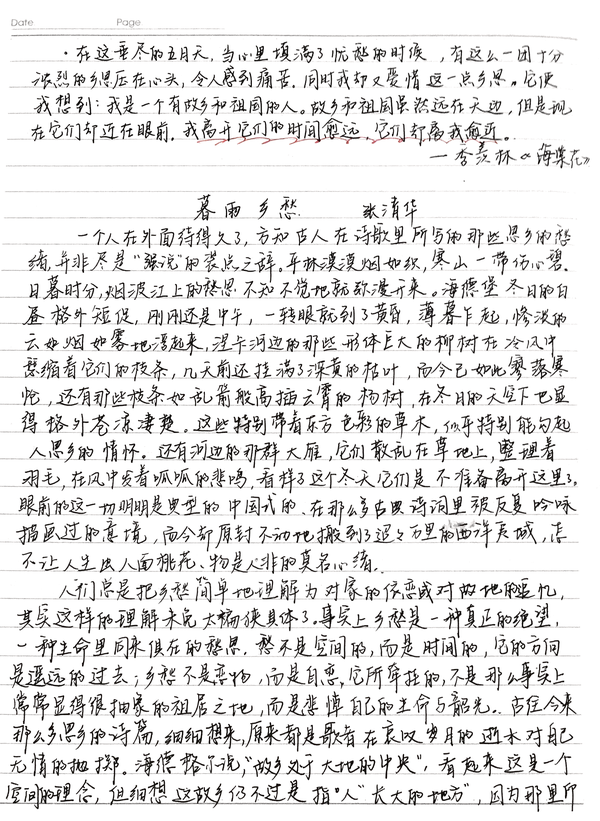 Date Page
·在这垂尽的五月天，当心里填满了忧愁的时候，有这么一团十分
浓烈的乡思压在心头，令人感到痛苦。同时我却又爱惜这一点乡思。它使
我想到：我是一个有故乡和祖国的人。故乡和祖国虽然远在天边，但是现
在它们却近在眼前。我离开它们的时间愈远，它们却离我愈近。
—季羡林《海棠花》
暮雨乡愁 张清华
一个人在外面待得久了，方知古人在诗歌里所写的那些思乡的愁
绪，并非尽是“强说”的装点之辞。平林漠漠烟如织，寒山一带伤心碧。
日暮时分，烟波江上的愁思不知不觉地就弥漫开来。海德堡冬日的白
昼格外短促，刚刚还是中午，一转眼就到了黄昏，薄暮乍起，惨淡的
云如烟如雾地漫起来，涅卡河边的那些形体巨大的柳树在冷风中
瑟缩着它们的枝条，几天前还挂满了深黄的枯叶，而今已如此寥落寒
怆，还有那些枝条如乱箭般高插云霄的杨树，在冬日的天空下也显
得格外苍凉凄楚。这些特别带着东方色彩的草木，似乎特别能勾起
人思乡的情怀。还有河边的那群大雁，它们散乱在草地上，整理着
羽毛，在风中发着呱呱的悲鸣，看样子这个冬天它们是不准备离开这里了。
眼前的这一切明明是典型的中国式的、在那么多古典诗词里被反复吟咏
描画过的意境，而今却原封不动地搬到了迢迢万里的西洋夷城，怎
不让人生出人面桃花、物是人非的莫名心绪。
人们总是把乡愁简单地理解为对家的依恋或对故地的追忆，
其实这样的理解未免太褊狭具体了。事实上乡愁是一种真正的绝望，
一种生命里同来俱在的愁思。愁不是空间的，而是时间的，它的方向
是遥远的过去；乡愁不是恋物，而是自恋，它所牵挂的，不是那么事实上
常常显得很抽象的祖居之地，而是悲悼自己的生命与韶光。古往今来
那么多思乡的诗篇，细细想来，原来都是歌者在哀叹岁月的逝水对自己
无情的抛掷。海德格尔说，“故乡处于大地的中央”，看起来这是一个
空间的理念，但细想这故乡仍不过是指“人”长大的地方”，因为那里印